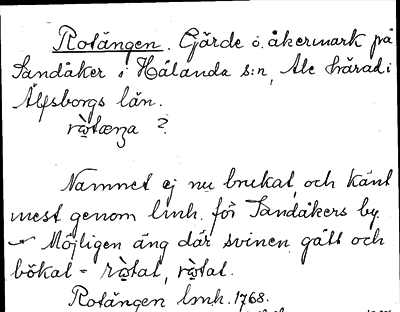 Rotängen. Gärde o. åkermark på
Sandåker i Hålanda s:n, Ale härad i
Älfsborgs län.
rωtæŋa ?
Namnet ej nu brukat, och känt
mest genom lmh. för Sandåkers by.
Möjligen äng där svinen gått och
bökat = rωtat, rωtat.
Rotängen lmh. 1768.